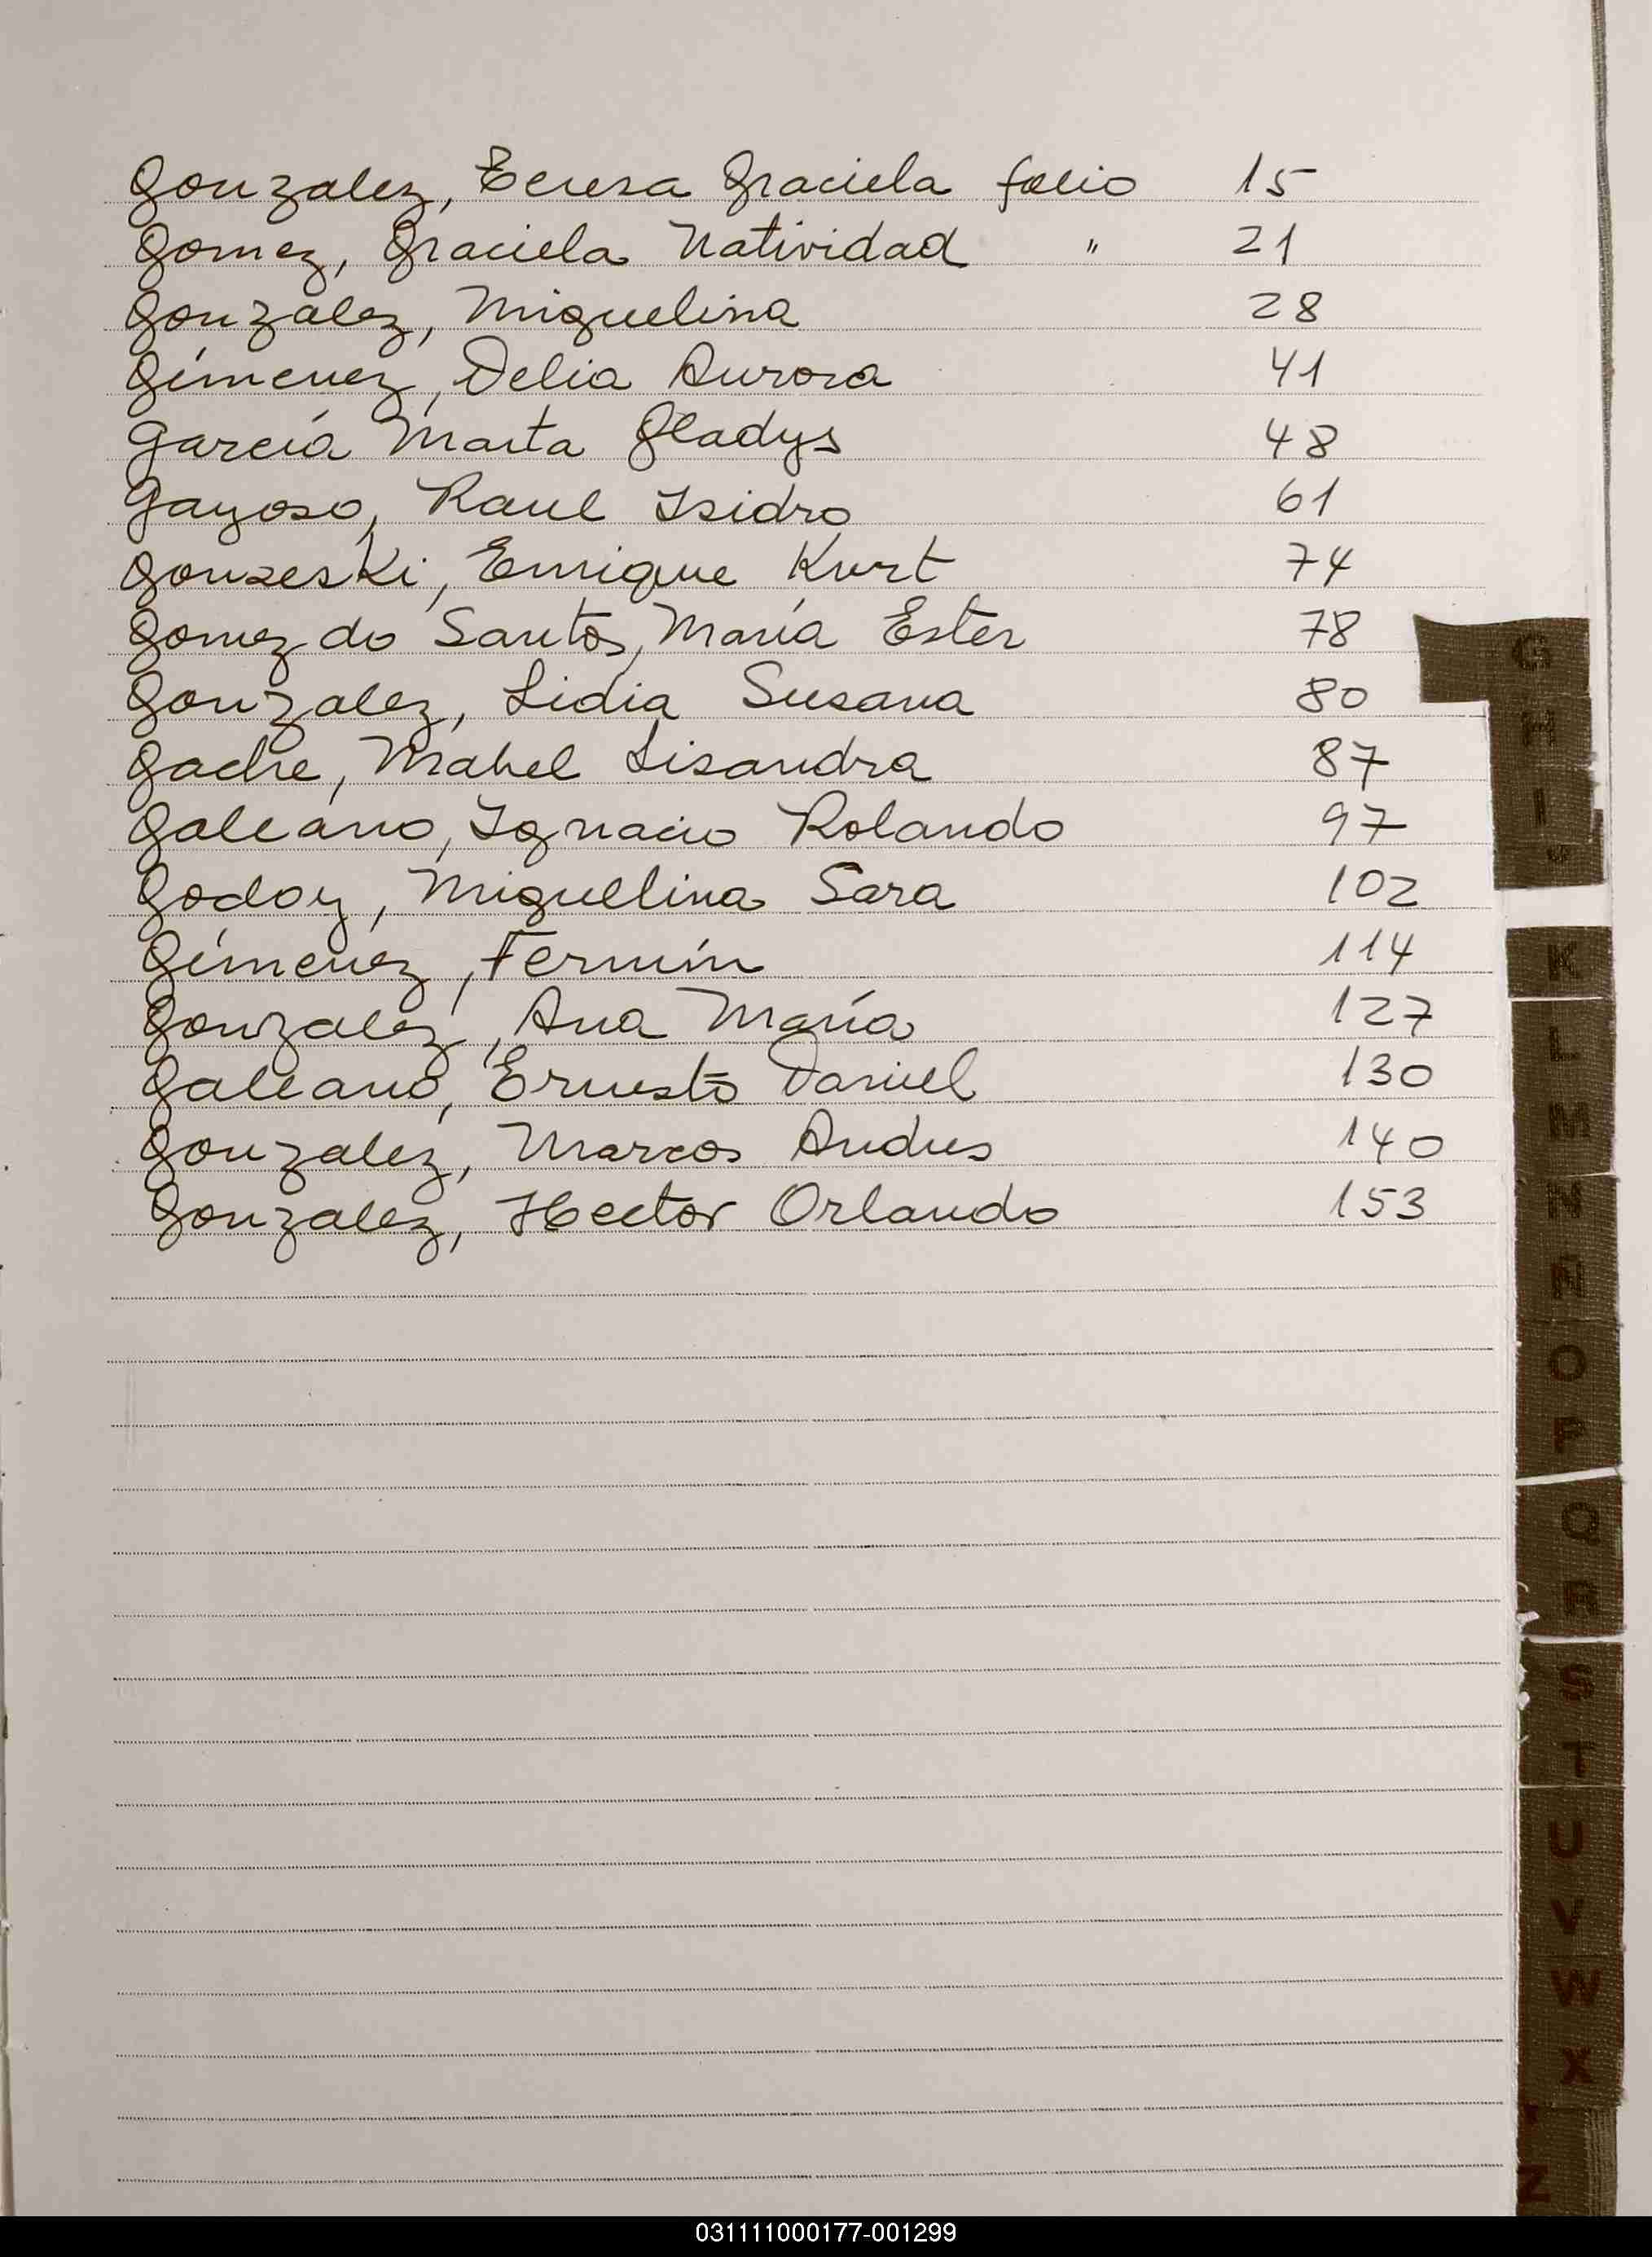 Gonzalez, Teresa Graciela folio 15
Gomez, Graciela Natividad " 21
Gonzalez, Miguelina 28
Gímenez, Delia Aurora 41
García Marta Gladys 48
Gayoso, Raul Isidro 61
Gonseski, Enrique Kurt 74
Gomez do Santos, María Ester 78
Gonzalez, Lidia Susana 80
Gache, Mabel Lisandra 87
Galeano, Ignacio Rolando 97
Godoy, Miguelina Sara 102
Gímenez, Fermín 114
Gonzalez, Ana María 127
Galeano, Ernesto Daniel 130
Gonzalez, Marcos Andres 140
Gonzalez, Hector Orlando 153
G
H
I
J
K
L
M
N
Ñ
O
P
Q
R
S
T
U
V
W
X
Y
Z
031111000177-001299